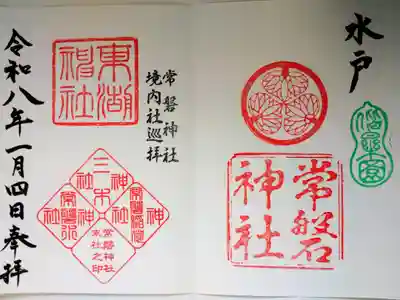 水戸
偕楽園
常磐
神社
東湖
神社
常磐神社
境内社巡拝
三木
神社
常磐稲荷
神社
常磐神社
末社之印
令和八年一月四日奉拝